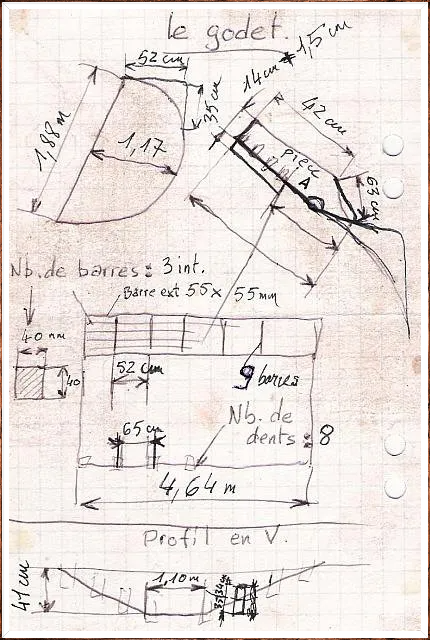 le godet.
52 cm
14cm 1,5cm
35 cm
42 cm
1,88 m
1,17
pièce A
63 cm
Nb. de barres : 3 int.
Barre ext 55 x 55 mm
40 mm
40
52 cm
9 barres
Nb. de
dents : 8
65 cm
4,64 m
Profil en V.
41 cm
1,10 m